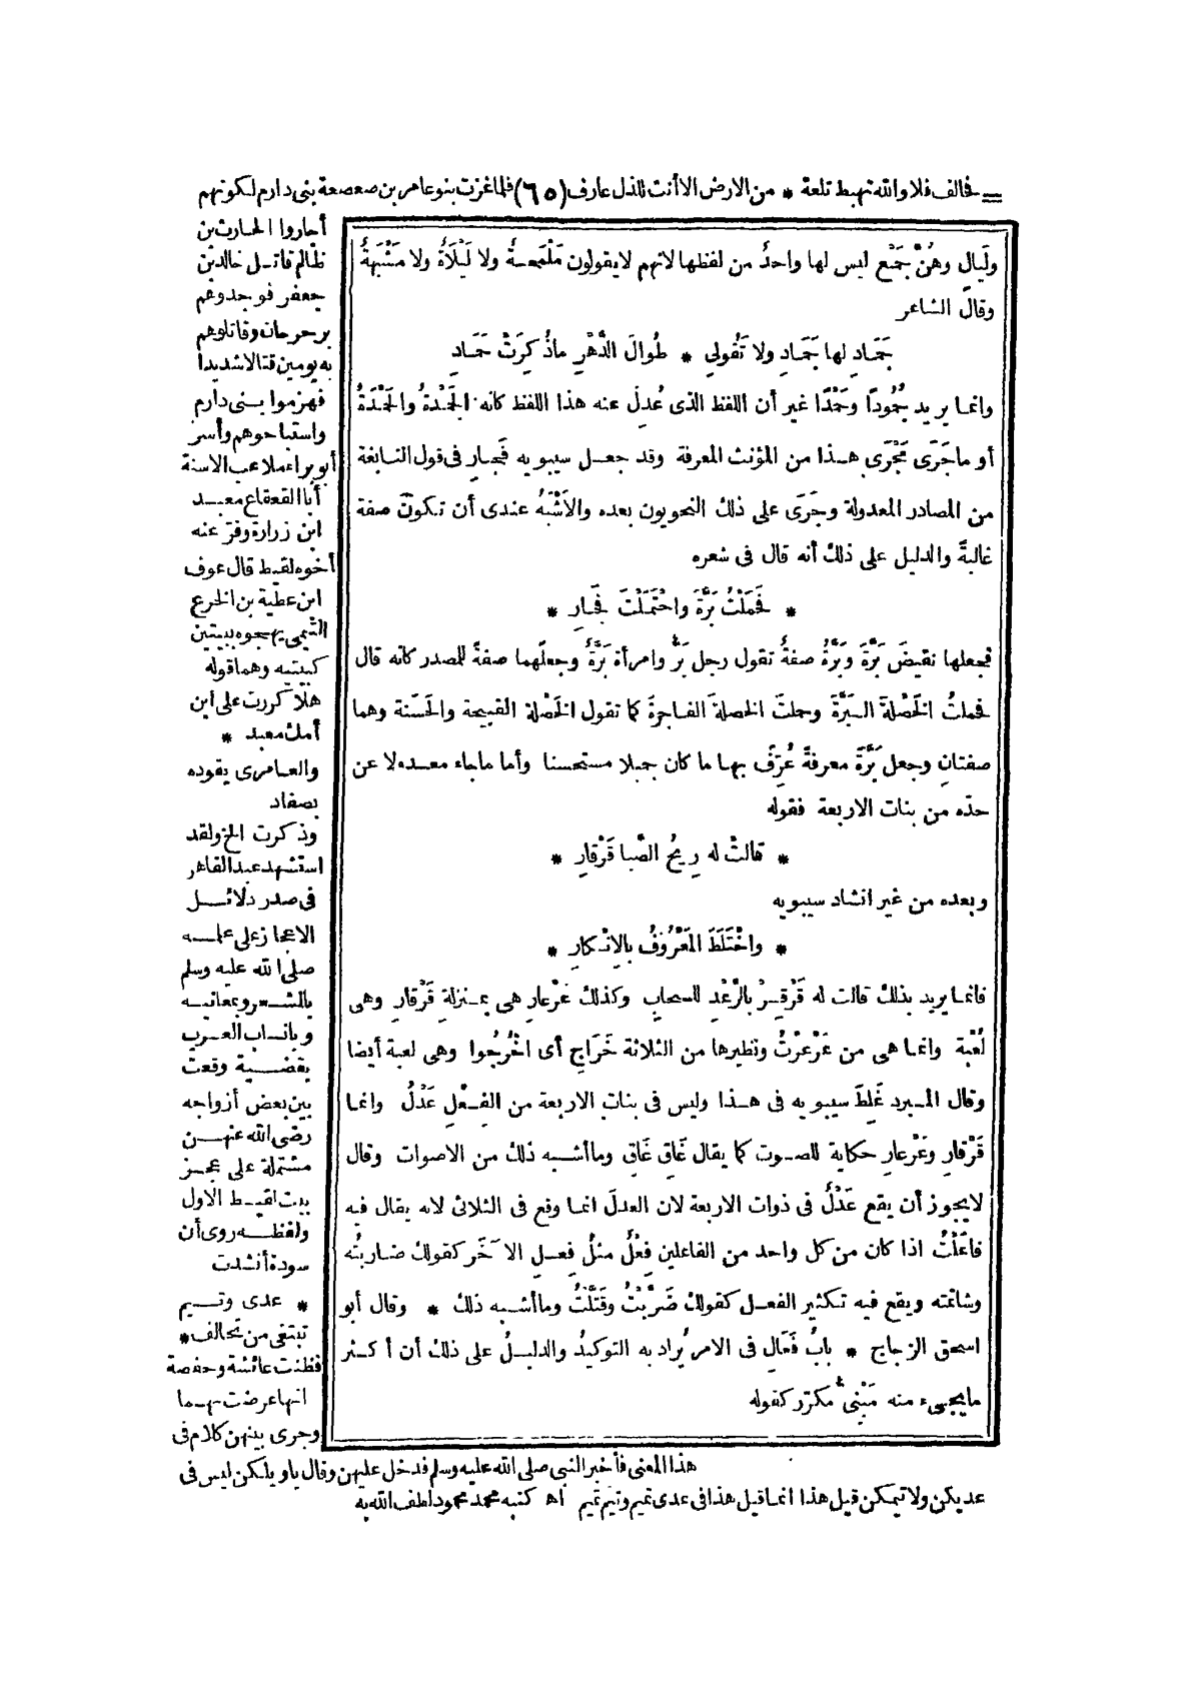 = فخالف فلا والله تهبط تلعة * من الارض الا أنت للذل عارف (٦٥) فلما غزت بنو عامر بن صعصعة بنى دارم لكونهم
وَلَيالٍ وهُنَّ جَمْع ليس لها واحدُ من لفظها لانهم لا يقولون مَلْمَحةُ ولا لَيْلَاةُ ولا مَشْبَهةُ
وقال الشاعر
جَمَادِ لها جَمَادِ ولا تَقُولِى * طُوالَ الدَّهْرِ ما ذُكِرَتْ حَمَادِ
وانما يريد جُمُودًا وحَمْدًا غير أن اللفظ الذى عُدِلَ عنه هذا اللفظ كانه الجَمْدةُ والحَمْدَةُ
أو ما جَرَى مَجْرَى هذا من المؤنث المعرفة وقد جعل سيبويه فَجَارِ فى قول النابغة
من المصادر المعدولة وجَرَى على ذلك النحويون بعده والاَشْبَهُ عندى أن تكون صفة
غالبةً والدليل على ذلك أنه قال فى شعره
* فَحَمَلْتُ بَرَّةَ واحْتَمَلْتَ فَجَارِ *
فجعلها نقيضَ بَرَّةَ وبَرَّةُ صفةُ تقول رجل بَرُّ وامرأة بَرَّةُ وجعلَهما صفةً للمصدر كانه قال
فحملتُ الخَصْلةَ البَرَّةَ وحملتَ الخصلةَ الفاجرةَ كما تقول الخَصْلة القبيحة والحَسَنة وهما
صفتانِ وجعل بَرَّةَ معرفةً عُرِّفَ بها ما كان جميلا مستحسنا وأما ما جاء معدولا عن
حدّه من بنات الاربعة فقوله
* قالتْ له رِيحُ الصَّبا قَرْقارِ *
وبعده من غير انشاد سيبويه
* واخْتَلَطَ المَعْرُوفُ بالاِنْكارِ *
فانما يريد بذلك قالت له قَرْقِرْ بالرَّعْدِ للسحابِ وكذلك عَرْعارِ هى بمنزلة قَرْقارِ وهى
لُعْبة وانما هى من عَرْعَرْتُ ونظيرها من الثلاثة خَرَاجِ أى اخْرُجُوا وهى لعبة أيضا
وقال المبرد غَلِطَ سيبويه فى هذا وليس فى بنات الاربعة من الفِعْلِ عَدْلُ وانما
قَرْقارِ وعَرْعارِ حكاية للصوت كما يقال غَاقِ غَاقِ وما أشبه ذلك من الاصوات وقال
لا يجوز أن يقع عَدْلُ فى ذوات الاربعة لان العدلَ انما وقع فى الثلاثى لانه يقال فيه
فاعَلْتُ اذا كان من كل واحد من الفاعلين فِعْلُ مثلُ فِعلِ الآخَر كقولك ضاربتُه
وشاتمته ويقع فيه تكثير الفعل كقولك ضَرَّبْتُ وقَتَّلْتُ وما أشبه ذلك * وقال أبو
اسحق الزجاج * بابُ فَعَالِ فى الامر يُراد به التوكيدُ والدليلُ على ذلك أن أكثر
ما يجىء منه مَبْنِىُّ مكرّر كقوله
أجاروا الحارث بن
ظالم قاتل خالد بن
جعفر فوجدوهم
برحرحان وقاتلوهم
به يومين قتالا شديدا
فهزموا بنى دارم
واستباحوهم وأسر
أبو براء ملاعب الاسنة
أبا القعقاع معبد
ابن زرارة وفرّ عنه
أخوه لقيط قال عوف
ابن عطية بن الخرع
التّيمى يهجوه ببيتين
كبيتيه وهما قوله
هلّا كررت على ابن
أمك معبد *
والعامرى يقوده
بصفاد
وذكرت الخ ولقد
استشهد عبد القاهر
فى صدر دلائل
الاعجاز على علمه
صلى الله عليه وسلم
بالشعر وبمعانيه
وبانساب العرب
بقضية وقعت
بين بعض أزواجه
رضى الله عنهن
مشتملة على عجز
بيت لقيط الاول
ولفظه روى أن
سودة أنشدت
* عدى وتيم
تبتغى من تحالف *
فظنت عائشة وحفصة
انها عرضت بهما
وجرى بينهن كلام فى
هذا المعنى فأخبر النبى صلى الله عليه وسلم فدخل عليهن وقال يا ويلكن ليس فى
عديكن ولا تيمكن قيل هذا انما قيل هذا فى عدى تميم وتيم تميم اه كتبه محمد محمود لطف الله به